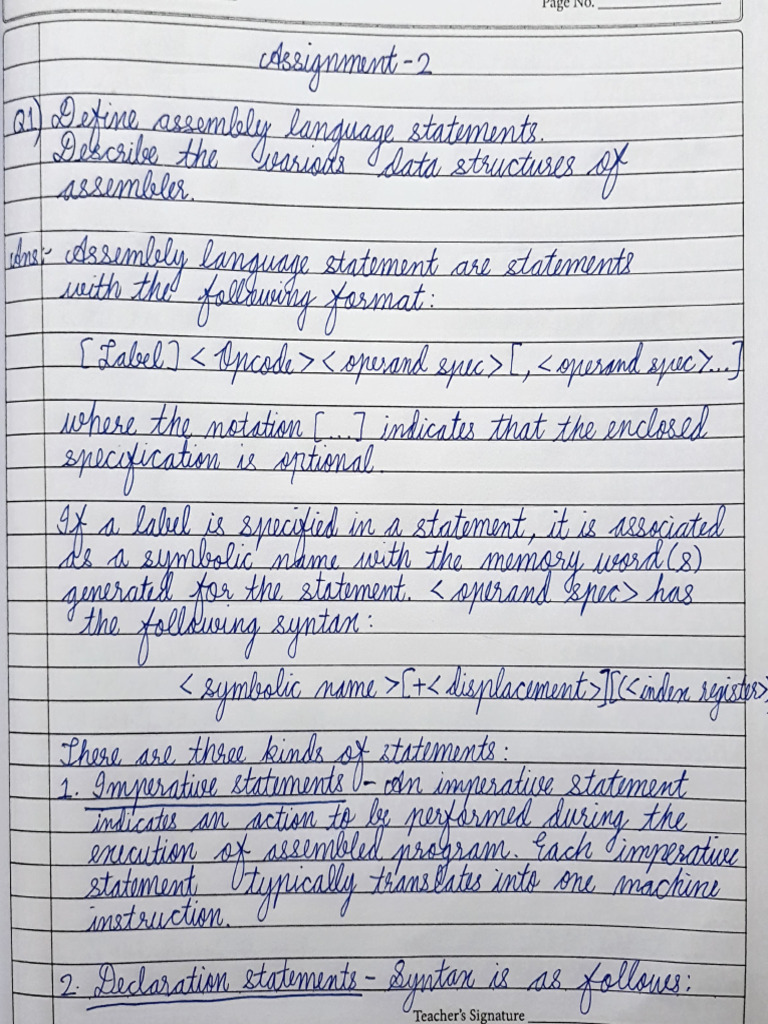 Page No.
Assignment-2
Q1) Define assembly language statements.
Describe the various data structures of
assembler.
Ans:- Assembly language statement are statements
with the following format:
[Label] <Opcode> <operand spec> [, <operand spec>...]
where the notation [...] indicates that the enclosed
specification is optional.
If a label is specified in a statement, it is associated
as a symbolic name with the memory word(s)
generated for the statement. <operand spec> has
the following syntax:
<symbolic name>[+<displacement>][(<index register>)
There are three kinds of statements:
1. Imperative statements - An imperative statement
indicates an action to be performed during the
execution of assembled program. Each imperative
statement typically translates into one machine
instruction.
2. Declaration statements - Syntax is as follows:
Teacher's Signature